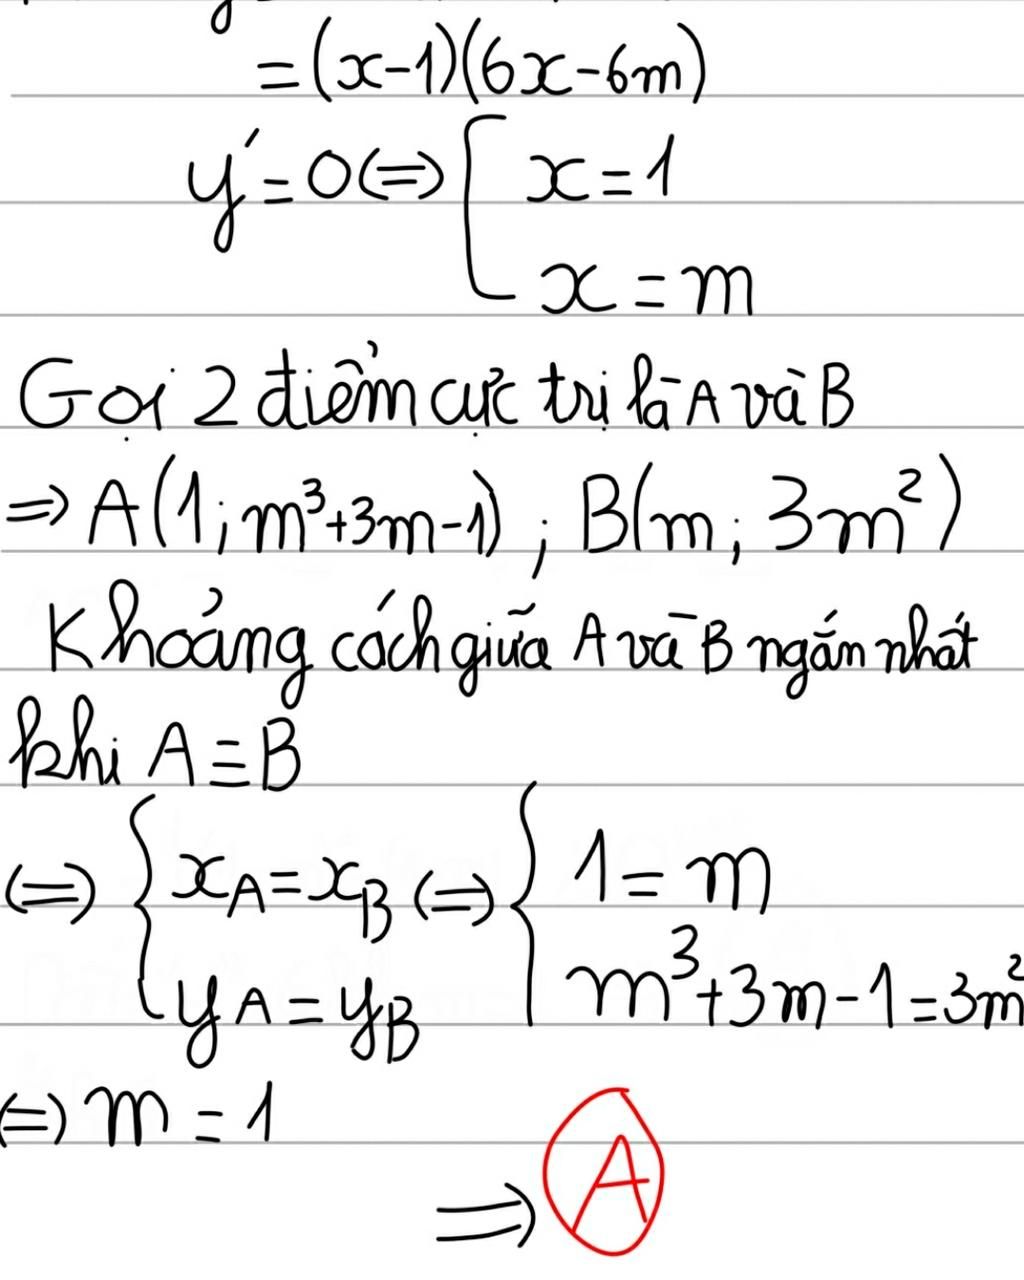 = (x-1)(6x-6m)
y' = 0 (=) [ x = 1
x = m
Gọi 2 điểm cực trị là A và B
=> A(1; m³+3m-1) ; B(m; 3m²)
Khoảng cách giữa A và B ngắn nhất
khi A ≡ B
(=) { x_A = x_B (=) { 1 = m
y_A = y_B m³+3m-1=3m²
(=) m = 1
=> A